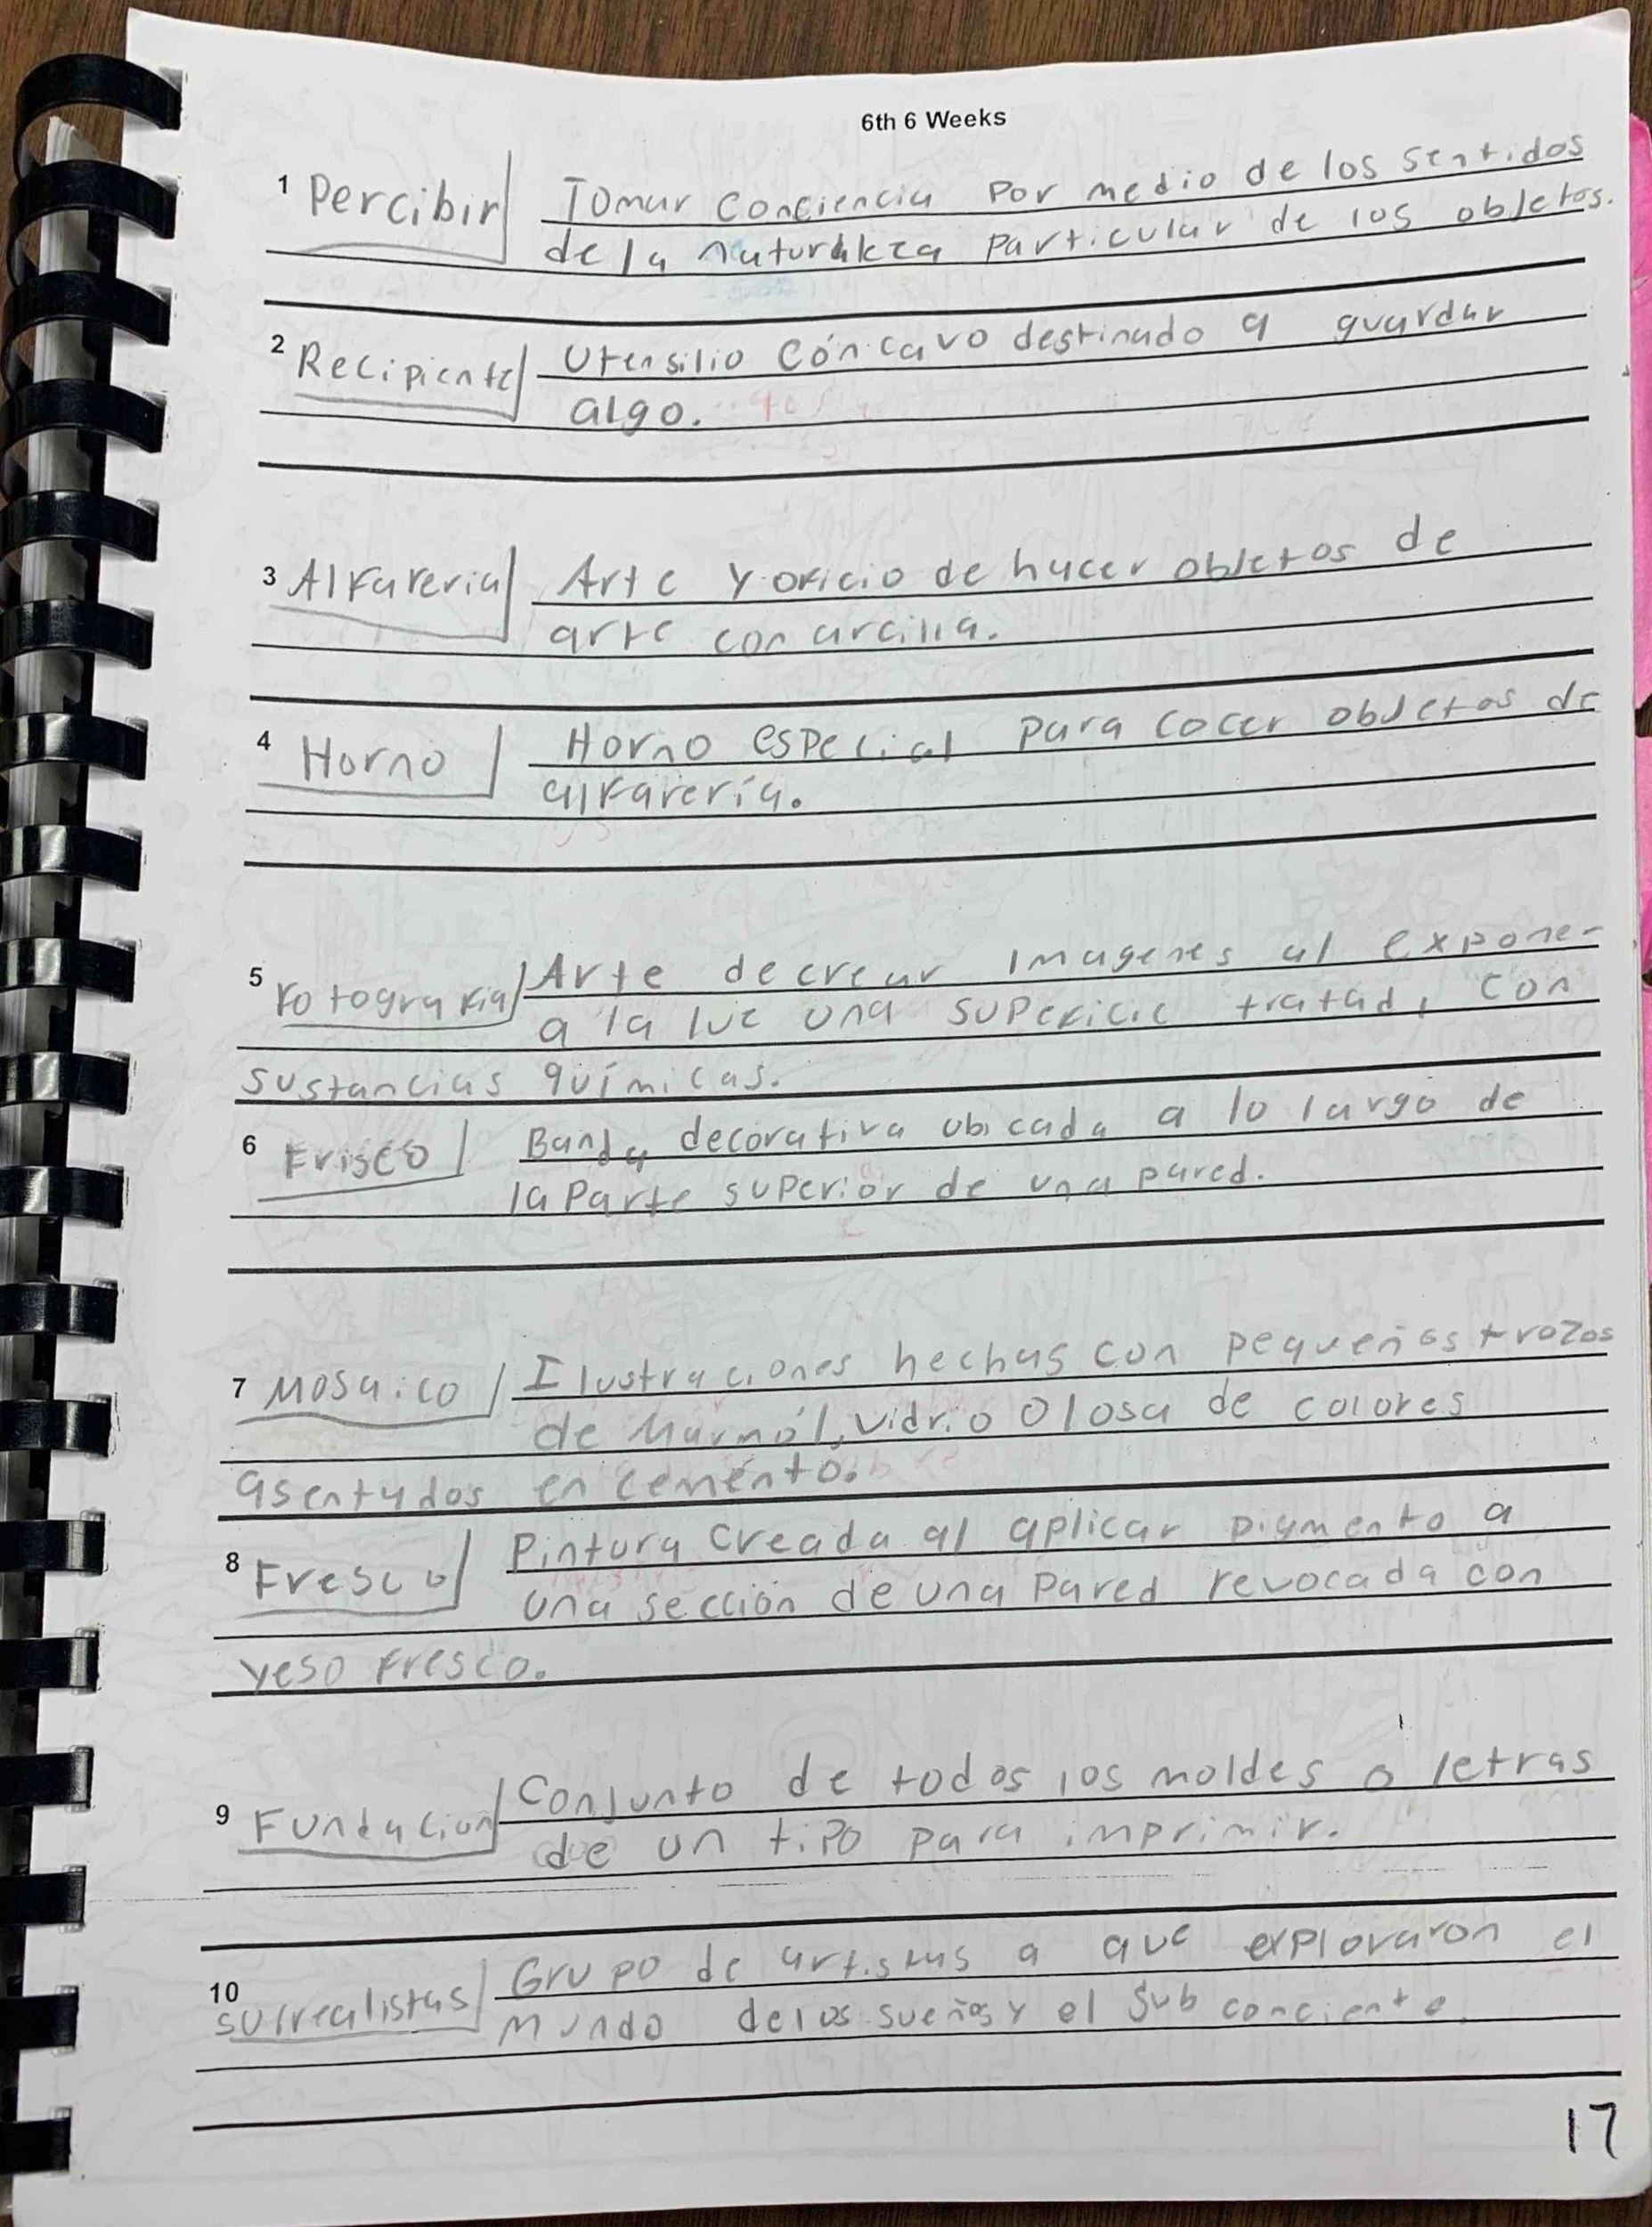 6th 6 Weeks
1 Percibir Tomar conciencia por medio de los sentidos
de la naturaleza particular de los objetos.
2 Recipiente Utensilio cóncavo destinado a guardar
algo.
3 Alfareria Arte y oficio de hacer objetos de
arte con arcilla.
4 Horno Horno especial para cocer objetos de
alfarería.
5 Fotografia Arte de crear imagenes al expone-
a la luz una superficie tratada con
sustancias químicas.
6 Frisco Banda decorativa ubicada a lo largo de
la parte superior de una pared.
7 Mosaico Ilustraciones hechas con pequeños trozos
de Marmól, vidrio o losa de colores
asentados en cemento.
8 Fresco Pintura creada al aplicar pigmento a
una sección de una pared revocada con
yeso fresco.
9 Fundacion Conjunto de todos los moldes o letras
de un tipo para imprimir.
10 surrealistas Grupo de artistas a que exploraron el
mundo de los sueños y el subconciente.
17